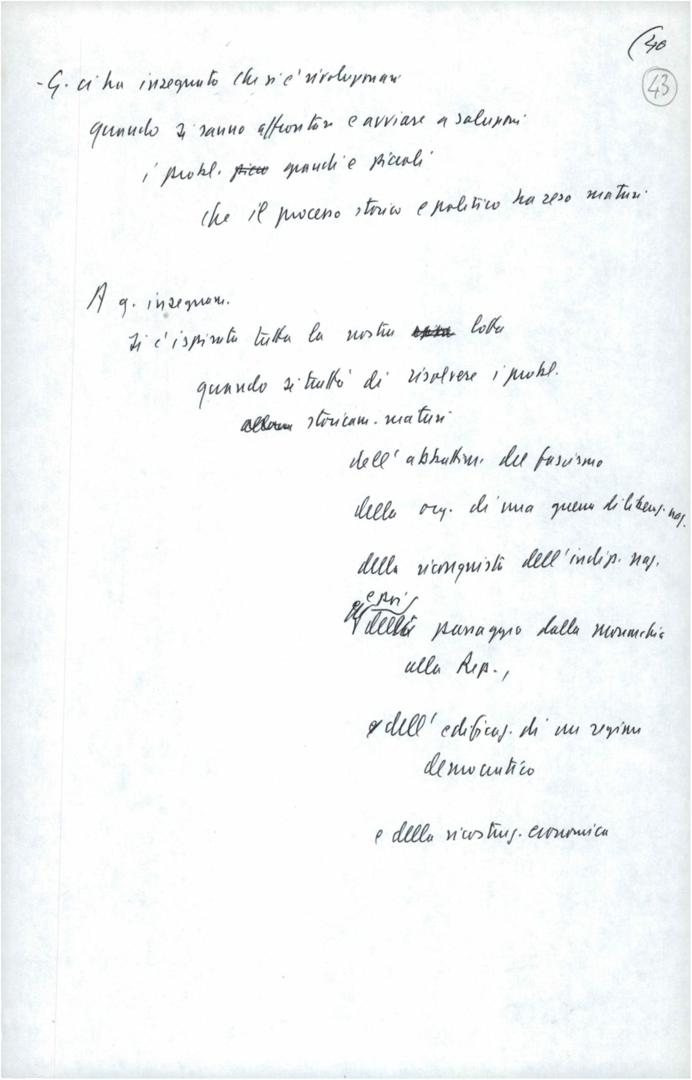 (40
43
- G. ci ha insegnato che si è rivoluzionari
quando si sanno affrontare e avviare a soluzioni
i probl. grandi e piccoli
che il processo storico e politico ha reso maturi.
A q. insegnam.
si è ispirata tutta la nostra lotta
quando si trattò di risolvere i probl.
storicam. maturi
dell'abbattim. del fascismo
della org. di una guerra di liberaz. naz.
della riconquista dell'indip. naz.
e poi
del passaggio dalla monarchia
alla Rep.,
dell'edificaz. di un regime
democratico
e della ricostruz. economica